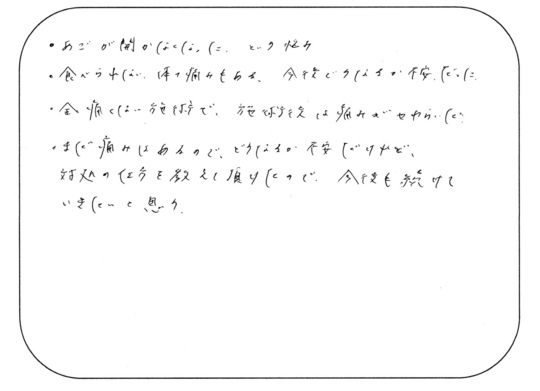 ・あごが開かなくなった。という悩み
・食べられない、体の痛みもある、今後どうなるか不安だった
・全く痛くない施術で、施術後は痛みがやわらいだ
・まだ痛みはあるので、どうなるか不安だけれど、
対処の仕方を教えて頂けたので、今後も続けて
いきたいと思う。